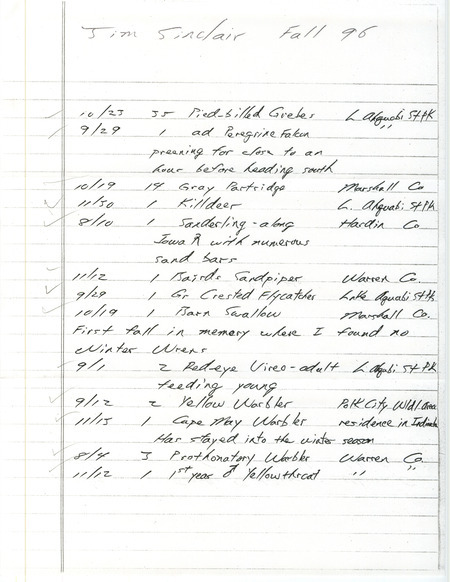 Jim Sinclair Fall 96
10/23 35 Pied-billed Grebes L. Ahquabi St Pk
9/29 1 ad Peregrine Falcon "
preening for close to an
hour before heading south
10/19 14 Gray Partridge Marshall Co
11/30 1 Killdeer L. Ahquabi St Pk
8/10 1 Sanderling - along Hardin Co
Iowa R with numerous
sand bars
11/12 1 Bairds Sandpiper Warren Co.
9/29 1 Gr Crested Flycatcher Lake Aquabi St Pk
10/19 1 Barn Swallow Marshall Co.
First fall in memory where I found no
Winter Wrens
9/1 2 Red-eye Vireo-adult L. Aquabi St Pk
feeding young
9/12 2 Yellow Warbler Polk City Wldl. Area
11/15 1 Cape May Warbler residence in
Has stayed into the winter season
8/4 3 Prothonotary Warbler Warren Co.
11/12 1 1st year ♂ Yellowthroat " "